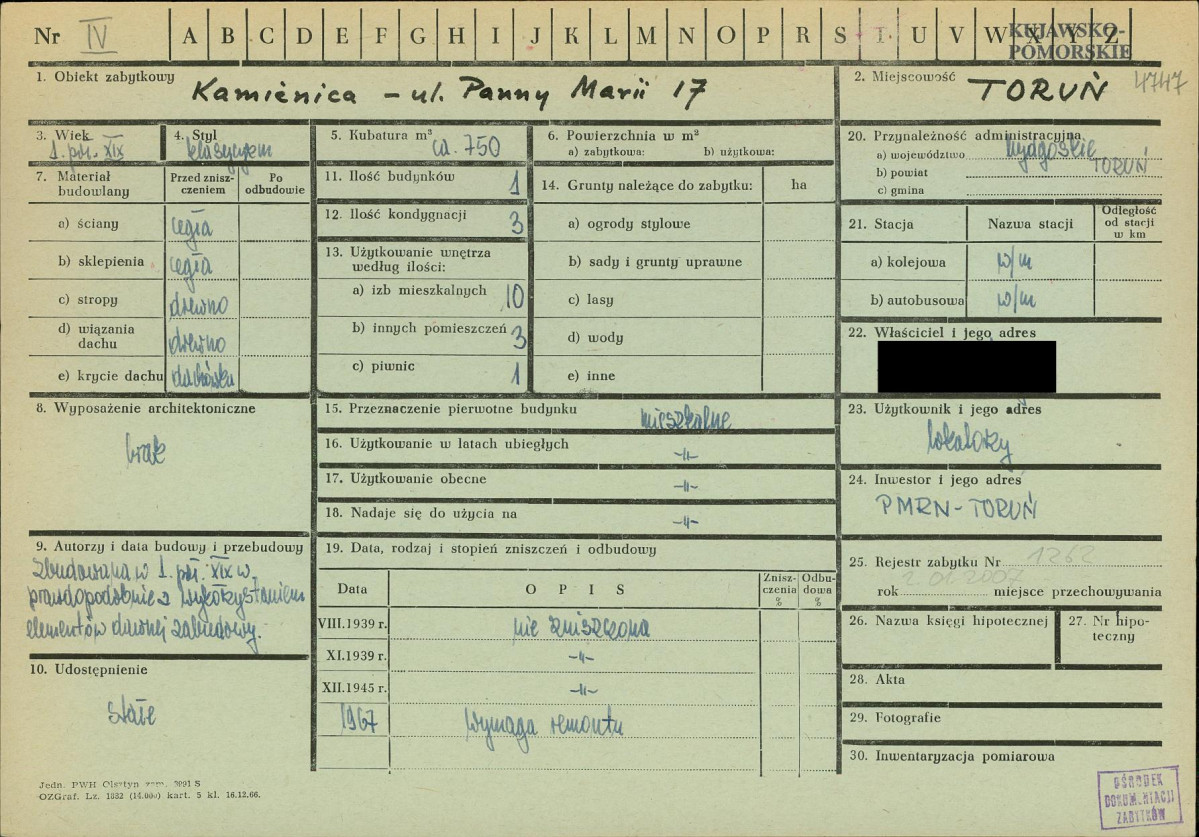 Nr IV A B C D E F G H I J K L M N O P R S T U V W X Y Z KUJAWSKO-
POMORSKIE
1. Obiekt zabytkowy Kamienica - ul. Panny Marii 17
2. Miejscowość TORUŃ 4747
3. Wiek 1. poł. XIX
4. Styl klasycyzm
5. Kubatura m³ ca. 750
6. Powierzchnia w m²
a) zabytkowa: b) użytkowa:
7. Materiał budowlany
Przed znisz-
czeniem
Po
odbudowie
a) ściany cegła
b) sklepienia cegła
c) stropy drewno
d) wiązania
dachu drewno
e) krycie dachu dachówka
8. Wyposażenie architektoniczne
brak
9. Autorzy i data budowy i przebudowy
Zbudowana w 1. poł. XIX w.
prawdopodobnie z wykorzystaniem
elementów dawnej zabudowy.
10. Udostępnienie
stałe
11. Ilość budynków 1
12. Ilość kondygnacji 3
13. Użytkowanie wnętrza
według ilości:
a) izb mieszkalnych 10
b) innych pomieszczeń 3
c) piwnic 1
14. Grunty należące do zabytku: ha
a) ogrody stylowe
b) sady i grunty uprawne
c) lasy
d) wody
e) inne
15. Przeznaczenie pierwotne budynku mieszkalne
16. Użytkowanie w latach ubiegłych -"-
17. Użytkowanie obecne -"-
18. Nadaje się do użycia na -"-
19. Data, rodzaj i stopień zniszczeń i odbudowy
Data OPIS Znisz-
czenia
% Odbu-
dowa
%
VIII.1939 r. nie zniszczona
XI.1939 r. -"-
XII.1945 r. -"-
1967 wymaga remontu
20. Przynależność administracyjna
a) województwo bydgoskie
b) powiat TORUŃ
c) gmina
21. Stacja Nazwa stacji Odległość
od stacji
w km
a) kolejowa w/m
b) autobusowa w/m
22. Właściciel i jego adres
23. Użytkownik i jego adres
lokatorzy
24. Inwestor i jego adres
PMRN-TORUŃ
25. Rejestr zabytku Nr 1262
2.01.2007
rok miejsce przechowywania
26. Nazwa księgi hipotecznej
27. Nr hipo-
teczny
28. Akta
29. Fotografie
30. Inwentaryzacja pomiarowa
Jedn. PWH Olsztyn zam. 3091 S
OZGraf. Lz. 1882 (14.000) kart. 5 kl. 16.12.66.
OŚRODEK
DOKUMENTACJI
ZABYTKÓW